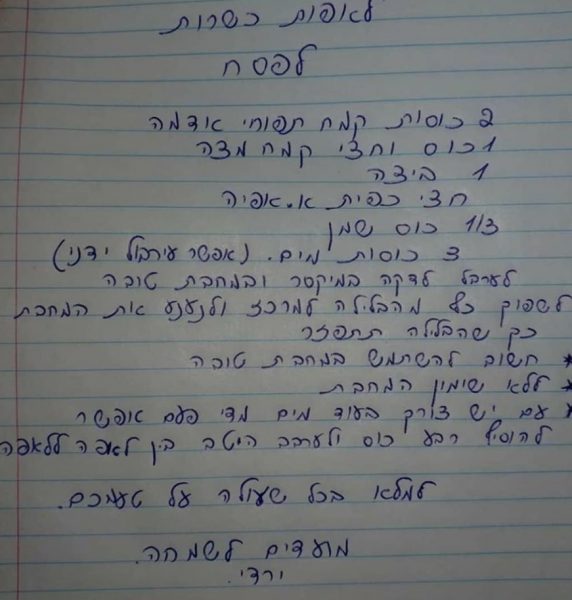 לאפות כשרות
לפסח
2 כוסות קמח תפוחי אדמה
1 כוס וחצי קמח מצה
1 ביצה
חצי כפית א.אפיה
1/3 כוס שמן
3 כוסות מים. (אפשר עירבול ידני)
לערבל לדקה במיקסר ובמחבת טובה
לשפוך כף מהבלילה למרכז ולנענע את המחבת
כך שהבלילה תתפזר
* חשוב להשתמש במחבת טובה
* ללא שימון המחבת
* עם יש צורך בעוד מים מדי פעם אפשר
להוסיף רבע כוס ולערבב היטב בין לאפה ללאפה
למלא בכל שעולה על טעמכם.
מועדים לשמחה.
ירדי.